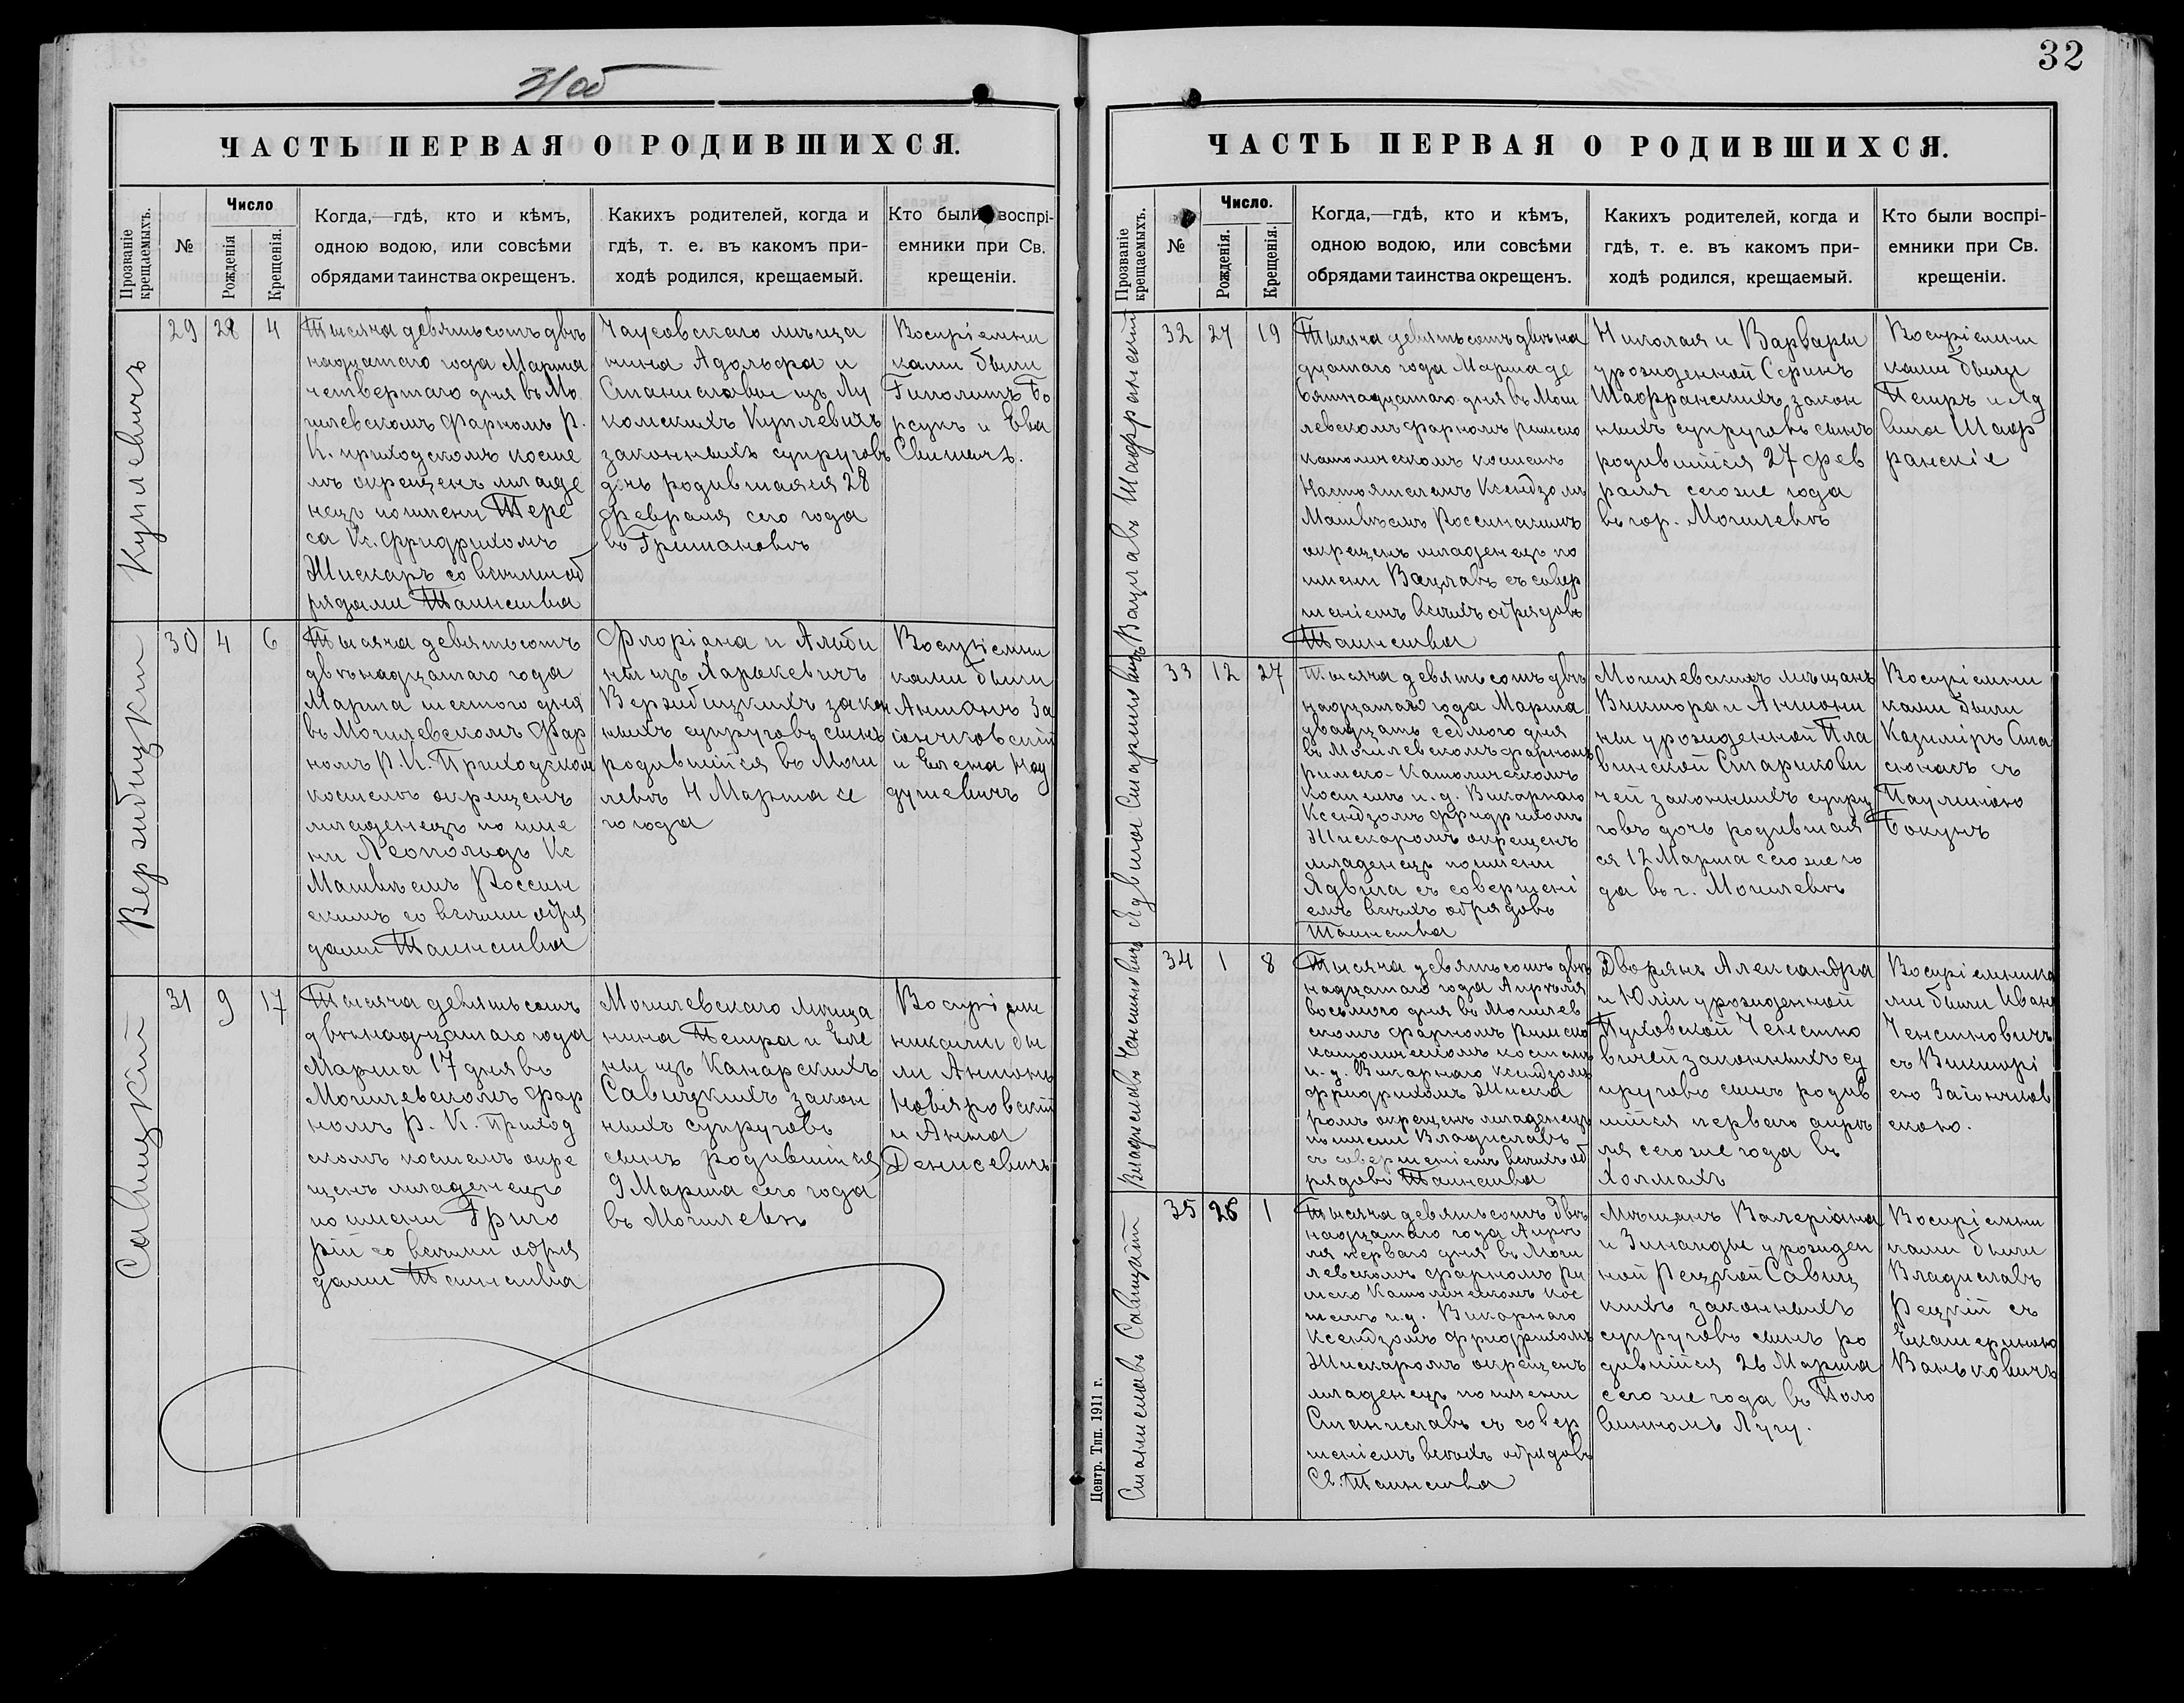 31об
ЧАСТЬ ПЕРВАЯ О РОДИВШИХСЯ.
Прозваніе крещаемыхъ.
№
Число
Рожденія
Крещенія.
Когда,—гдѣ, кто и кѣмъ,
одною водою, или совсѣми
обрядами таинства окрещенъ.
Какихъ родителей, когда и
гдѣ, т. е. въ какомъ при-
ходѣ родился, крещаемый.
Кто были воспрі-
емники при Св.
крещеніи.
Куплевичъ
29 28 4
Тысяча девятьсотъ двѣ
надцатаго года Марта
четвертаго дня въ Мо
гилевскомъ фарномъ Р.
К. приходскомъ косте
лѣ окрещенъ младе
нецъ по имени Тере
са Кс. Фридрихомъ
Жискаръ со всѣми об
рядами Таинства
Чаусовскаго мѣща
нина Адольфа и
Станиславы изъ Лу
комскихъ Куплевичъ
законныхъ супруговъ
дочь родившаяся 28
февраля сего года
въ Гришановѣ
Воспріемни
ками были
Гиполитъ Бо
рсукъ и Ева
Вержбицкій
30 4 6
Тысяча девятьсотъ
двѣнадцатаго года
Марта шестого дня
въ Могилевскомъ Фар
номъ Р. К. Приходском
костелѣ окрещенъ
младенецъ по име
ни Леопольдъ Кс
Матвѣемъ Россин
скимъ со всѣми обря
дами Таинства
Флоріана и Альби
ны изъ Харькевичъ
Вержбицкихъ закон
ныхъ супруговъ сынъ
родившійся въ Моги
левѣ 4 Марта се
го года
Воспріемни
ками были
Антонъ За
іончковскій
и Елена Над
думевичъ
Савицкій
31 9 17
Тысяча девятьсотъ
двѣнадцатаго года
Марта 17 дня въ
Могилевскомъ Фар
номъ Р. К. приход
скомъ костелѣ окре
щенъ младенецъ
по имени Григо
рій со всѣми обря
дами Таинства
Могилевскаго мѣща
нина Петра и Еле
ны изъ Канарскихъ
Савицкихъ закон
ныхъ супруговъ
сынъ родившійся
9 Марта сего года
въ Могилевѣ
Воспріем
никами бы
ли Антонъ
Новяровскій
и Анна
Денисевичъ
32
ЧАСТЬ ПЕРВАЯ О РОДИВШИХСЯ.
Прозваніе крещаемыхъ.
№
Число.
Рожденія.
Крещенія.
Когда,—гдѣ, кто и кѣмъ,
одною водою, или совсѣми
обрядами таинства окрещенъ.
Какихъ родителей, когда и
гдѣ, т. е. въ какомъ при-
ходѣ родился, крещаемый.
Кто были воспрі-
емники при Св.
крещеніи.
Вацлавъ Шафранскій
32 27 19
Тысяча девятьсотъ двѣна
дцатаго года Марта де
вятнадцатаго дня въ Моги
левскомъ фарномъ римско
католическомъ костелѣ
Настоятелемъ Ксендзомъ
Матвѣемъ Россинскимъ
окрещенъ младенецъ по
имени Вацлавъ съ совер
шеніемъ всѣхъ обрядовъ
Таинства
Николая и Варвары
урожденной Серинъ
Шафранскихъ, закон
ныхъ супруговъ сынъ
родившійся 27 фев
раля сего же года
въ гор. Могилевѣ
Воспріемни
ками были
Петръ и Яд
вига Шаф
ранскіе
Ядвига Стариковичъ
33 12 27
Тысяча девятьсотъ двѣ
надцатаго года Марта
двадцать седьмого дня
въ Могилевскомъ фарномъ
римско-Католическомъ
костелѣ и. д. Викарнаго
Ксендзомъ Фридрихомъ
Жискаромъ окрещенъ
младенецъ по имени
Ядвига съ совершені
емъ всѣхъ обрядовъ
Таинства
Могилевскихъ мѣщанъ
Виктора и Антони
ны урожденной Пла
винской Старикови
чей законныхъ супру
говъ дочь родившая
ся 12 Марта сего же го
да въ г. Могилевѣ
Воспріемни
ками были
Казиміръ Ста
сюнасъ съ
Паулиною
Бокунъ
Владиславъ Ченстковичъ
34 1 8
Тысяча девятьсотъ двѣ
надцатаго года Апрѣля
восьмого дня въ Могилев
скомъ фарномъ римско
католическомъ костелѣ
и. д. Викарнаго Ксендзомъ
Фридрихомъ Жиска
ромъ окрещенъ младенецъ
по имени Владиславъ
съ совершеніемъ всѣхъ об
рядовъ Таинства
Дворянъ Александра
и Юліи урожденной
Пуховской Ченстко
вичей законныхъ су
пруговъ сынъ родив
шійся перваго апрѣ
ля сего же года въ
Холмахъ
Воспріемника
ми были Иванъ
Ченстковичъ
съ Викторі
ею Заіончков
скою.
Станиславъ Савицкій
35 26 1
Тысяча девятьсотъ двѣ
надцатаго года Апрѣ
ля перваго дня въ Моги
левскомъ фарномъ ри
мско Католическомъ кос
телѣ и. д. Викарнаго
Ксендзомъ Фридрихомъ
Жискаромъ окрещенъ
младенецъ по имени
Станиславъ съ совер
шеніемъ всѣхъ обрядовъ
Св. Таинства
Мѣщанъ Валеріана
и Зинаиды урожден
ной Рецкой Савиц
кихъ законныхъ
супруговъ сынъ ро
дившійся 26 Марта
сего же года въ Поло
винномъ Лугу.
Воспріемни
ками были
Владиславъ
Рецкій съ
Екатериною
Ваньковичъ
Центр. Тип. 1911 г.